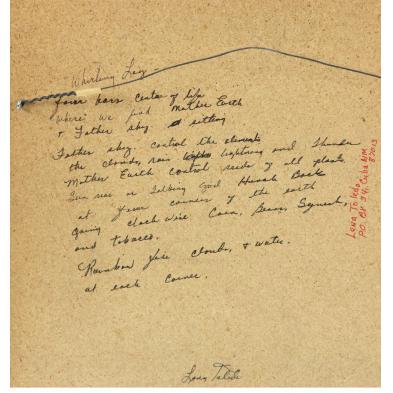 Whirling Log –
four bars center of life
where we find Mother Earth
+ Father sky sitting
Father sky, control the elements
the clouds, rain lightning and Thunder
Mother Earth control seeds of all plants
Sun rise or Talking God Hunch Back
at four corners of the earth
going clock wise Corn, Beans, Squash,
and tobacco.
Rainbow give clouds, + water.
at each corner.
Lena Toledo
P.O. BX 34, Cuba NM
87013
Lena Toledo